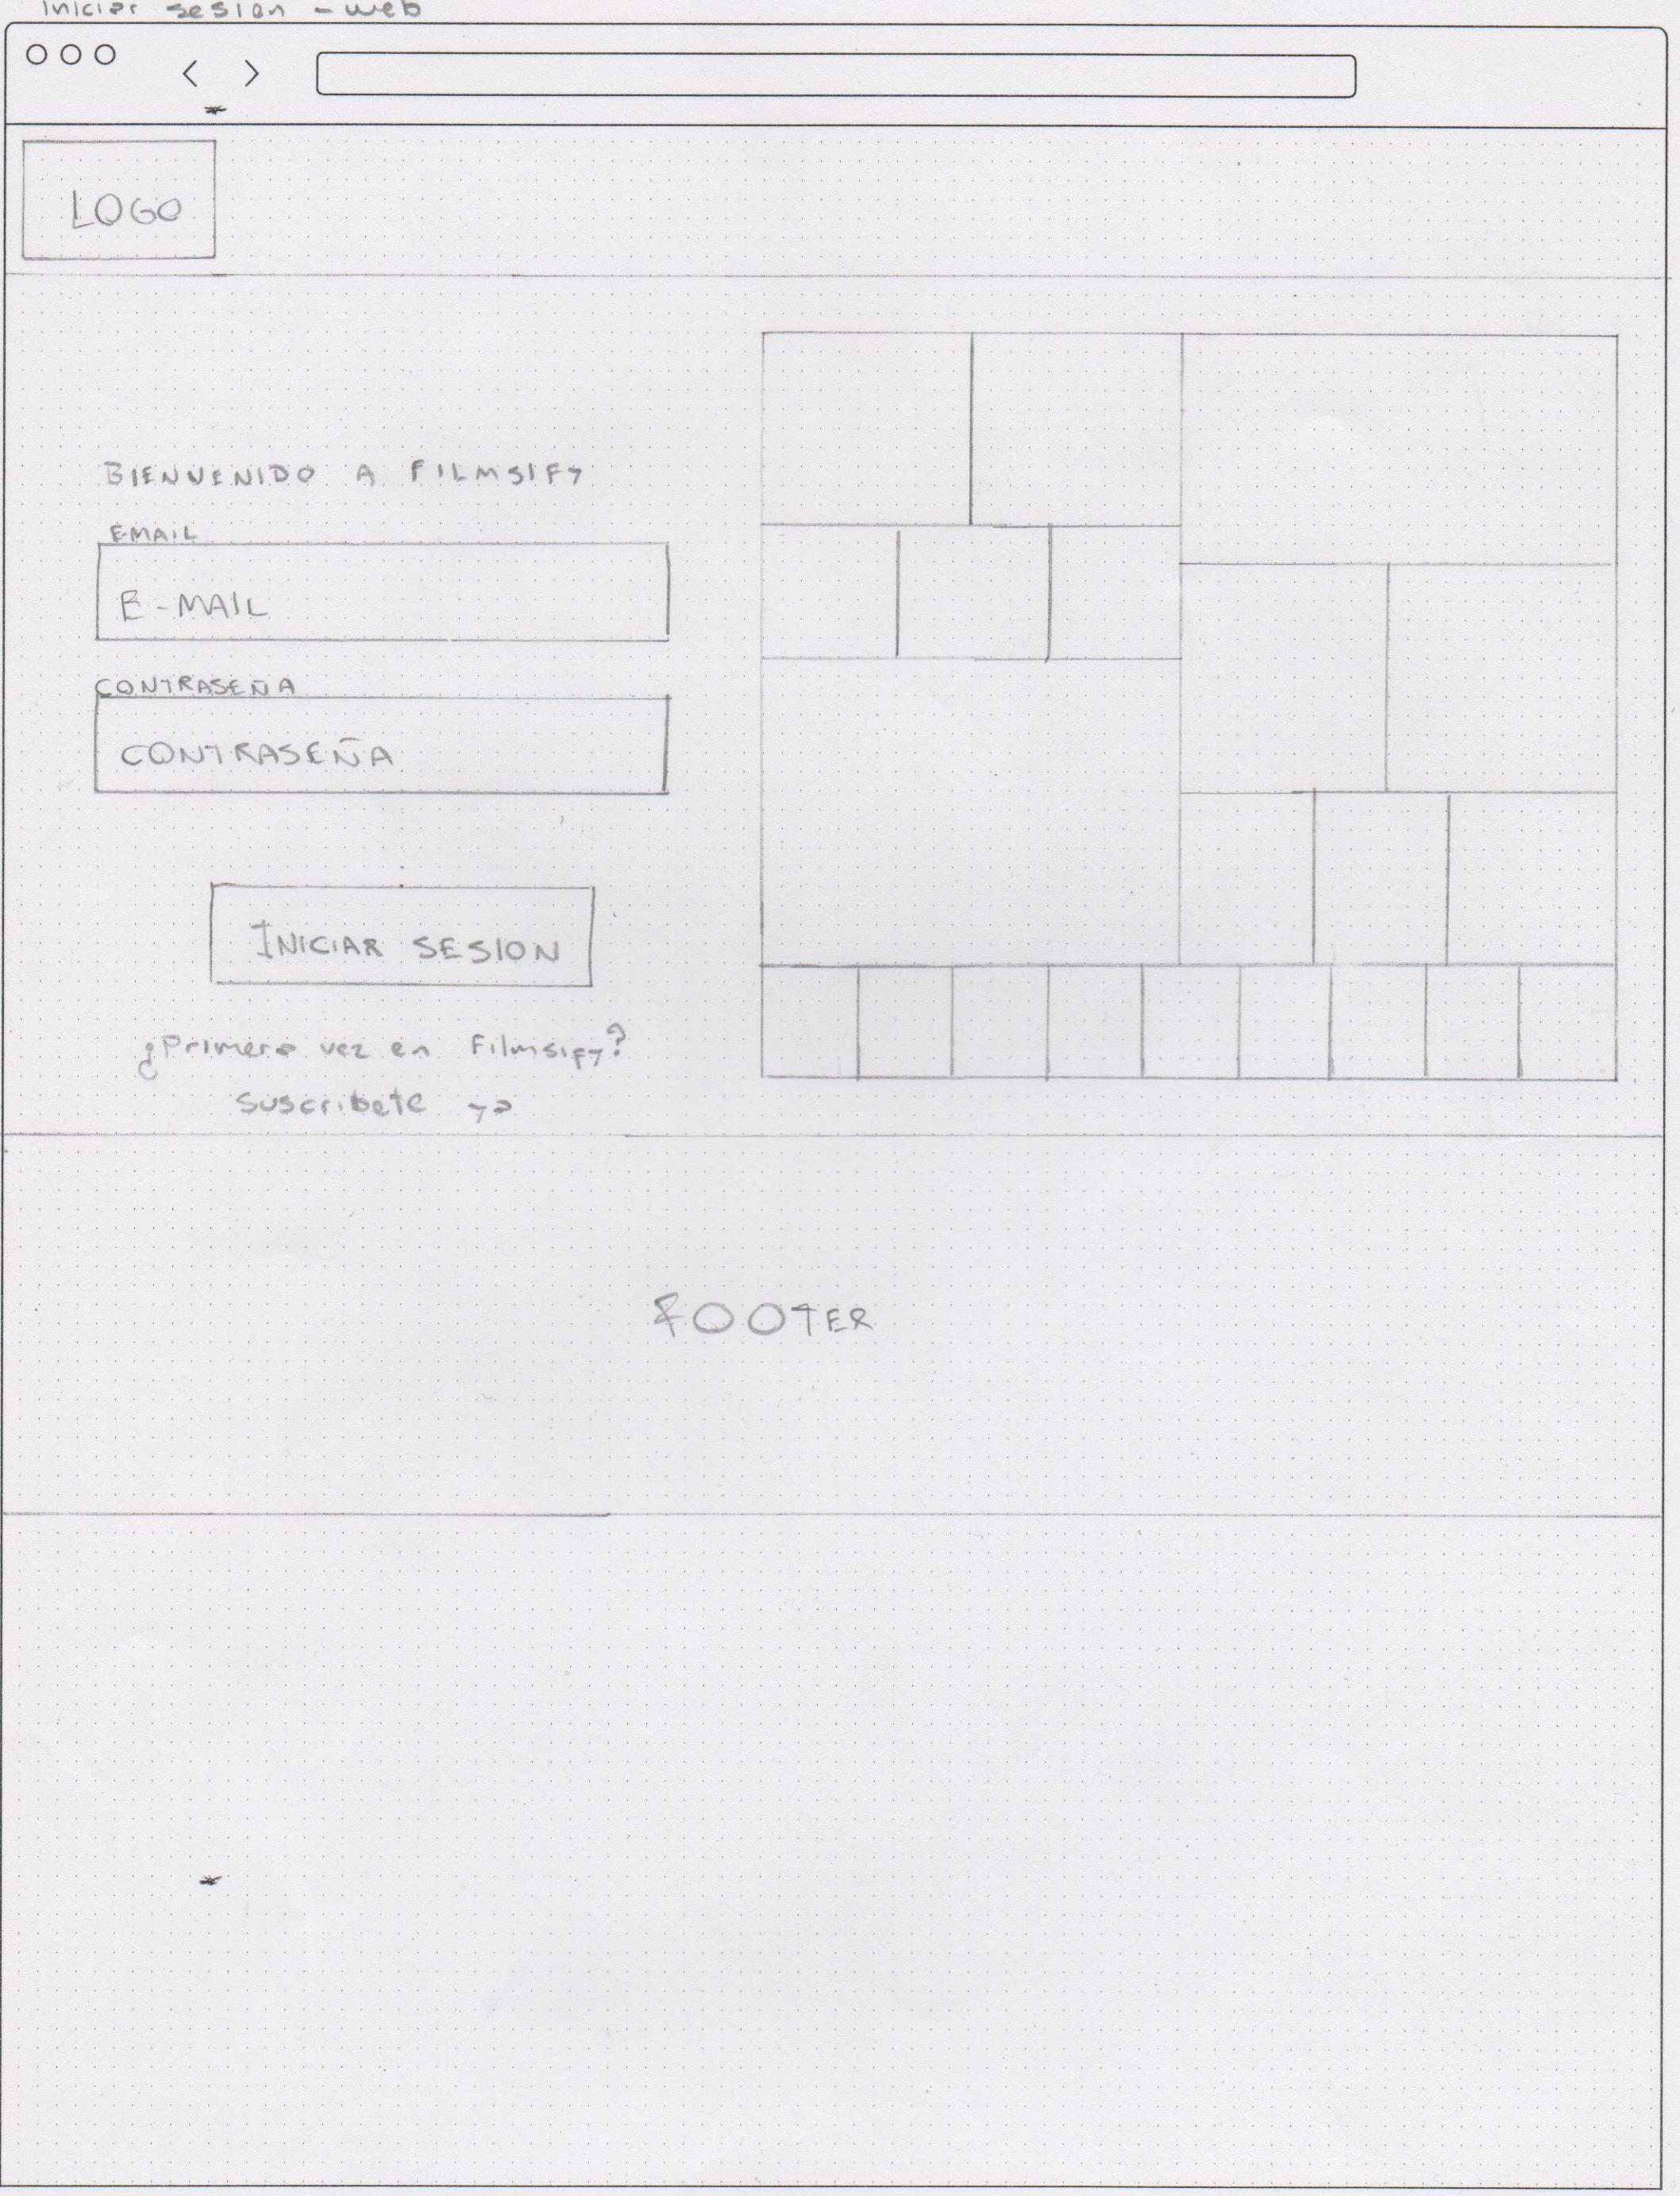 Iniciar sesion - web
LOGO
BIENVENIDO A FILMSIFY
EMAIL
E-MAIL
CONTRASEÑA
CONTRASEÑA
INICIAR SESION
¿Primera vez en Filmsify?
Suscribete →
FOOTER